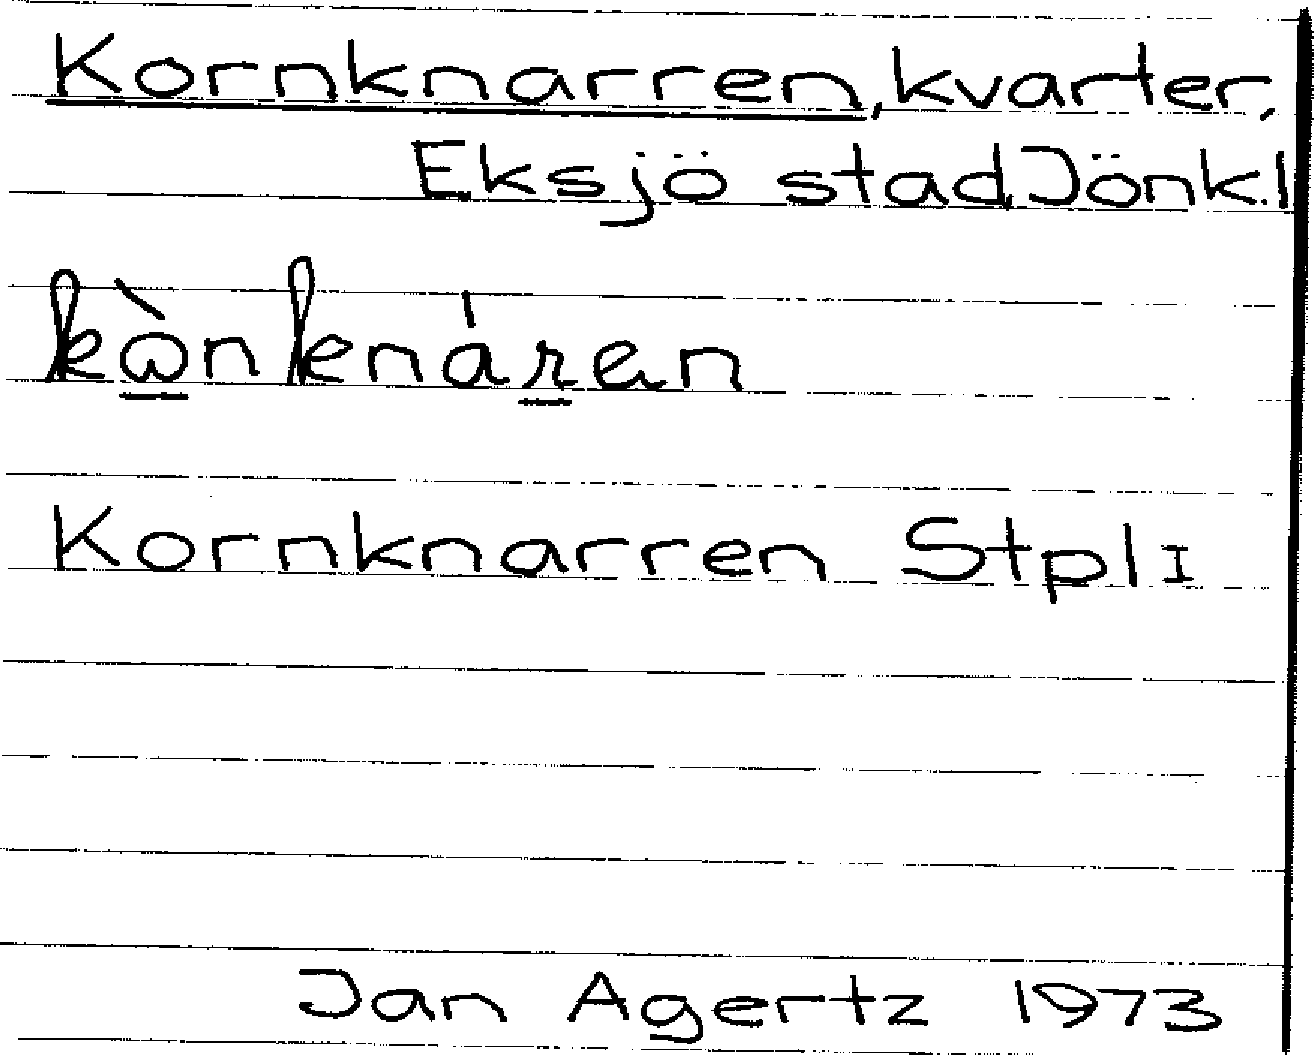 Kornknarren, kvarter,
Eksjö stad, Jönk.l
kὼnknáren
Kornknarren Stpl I
Jan Agertz 1973